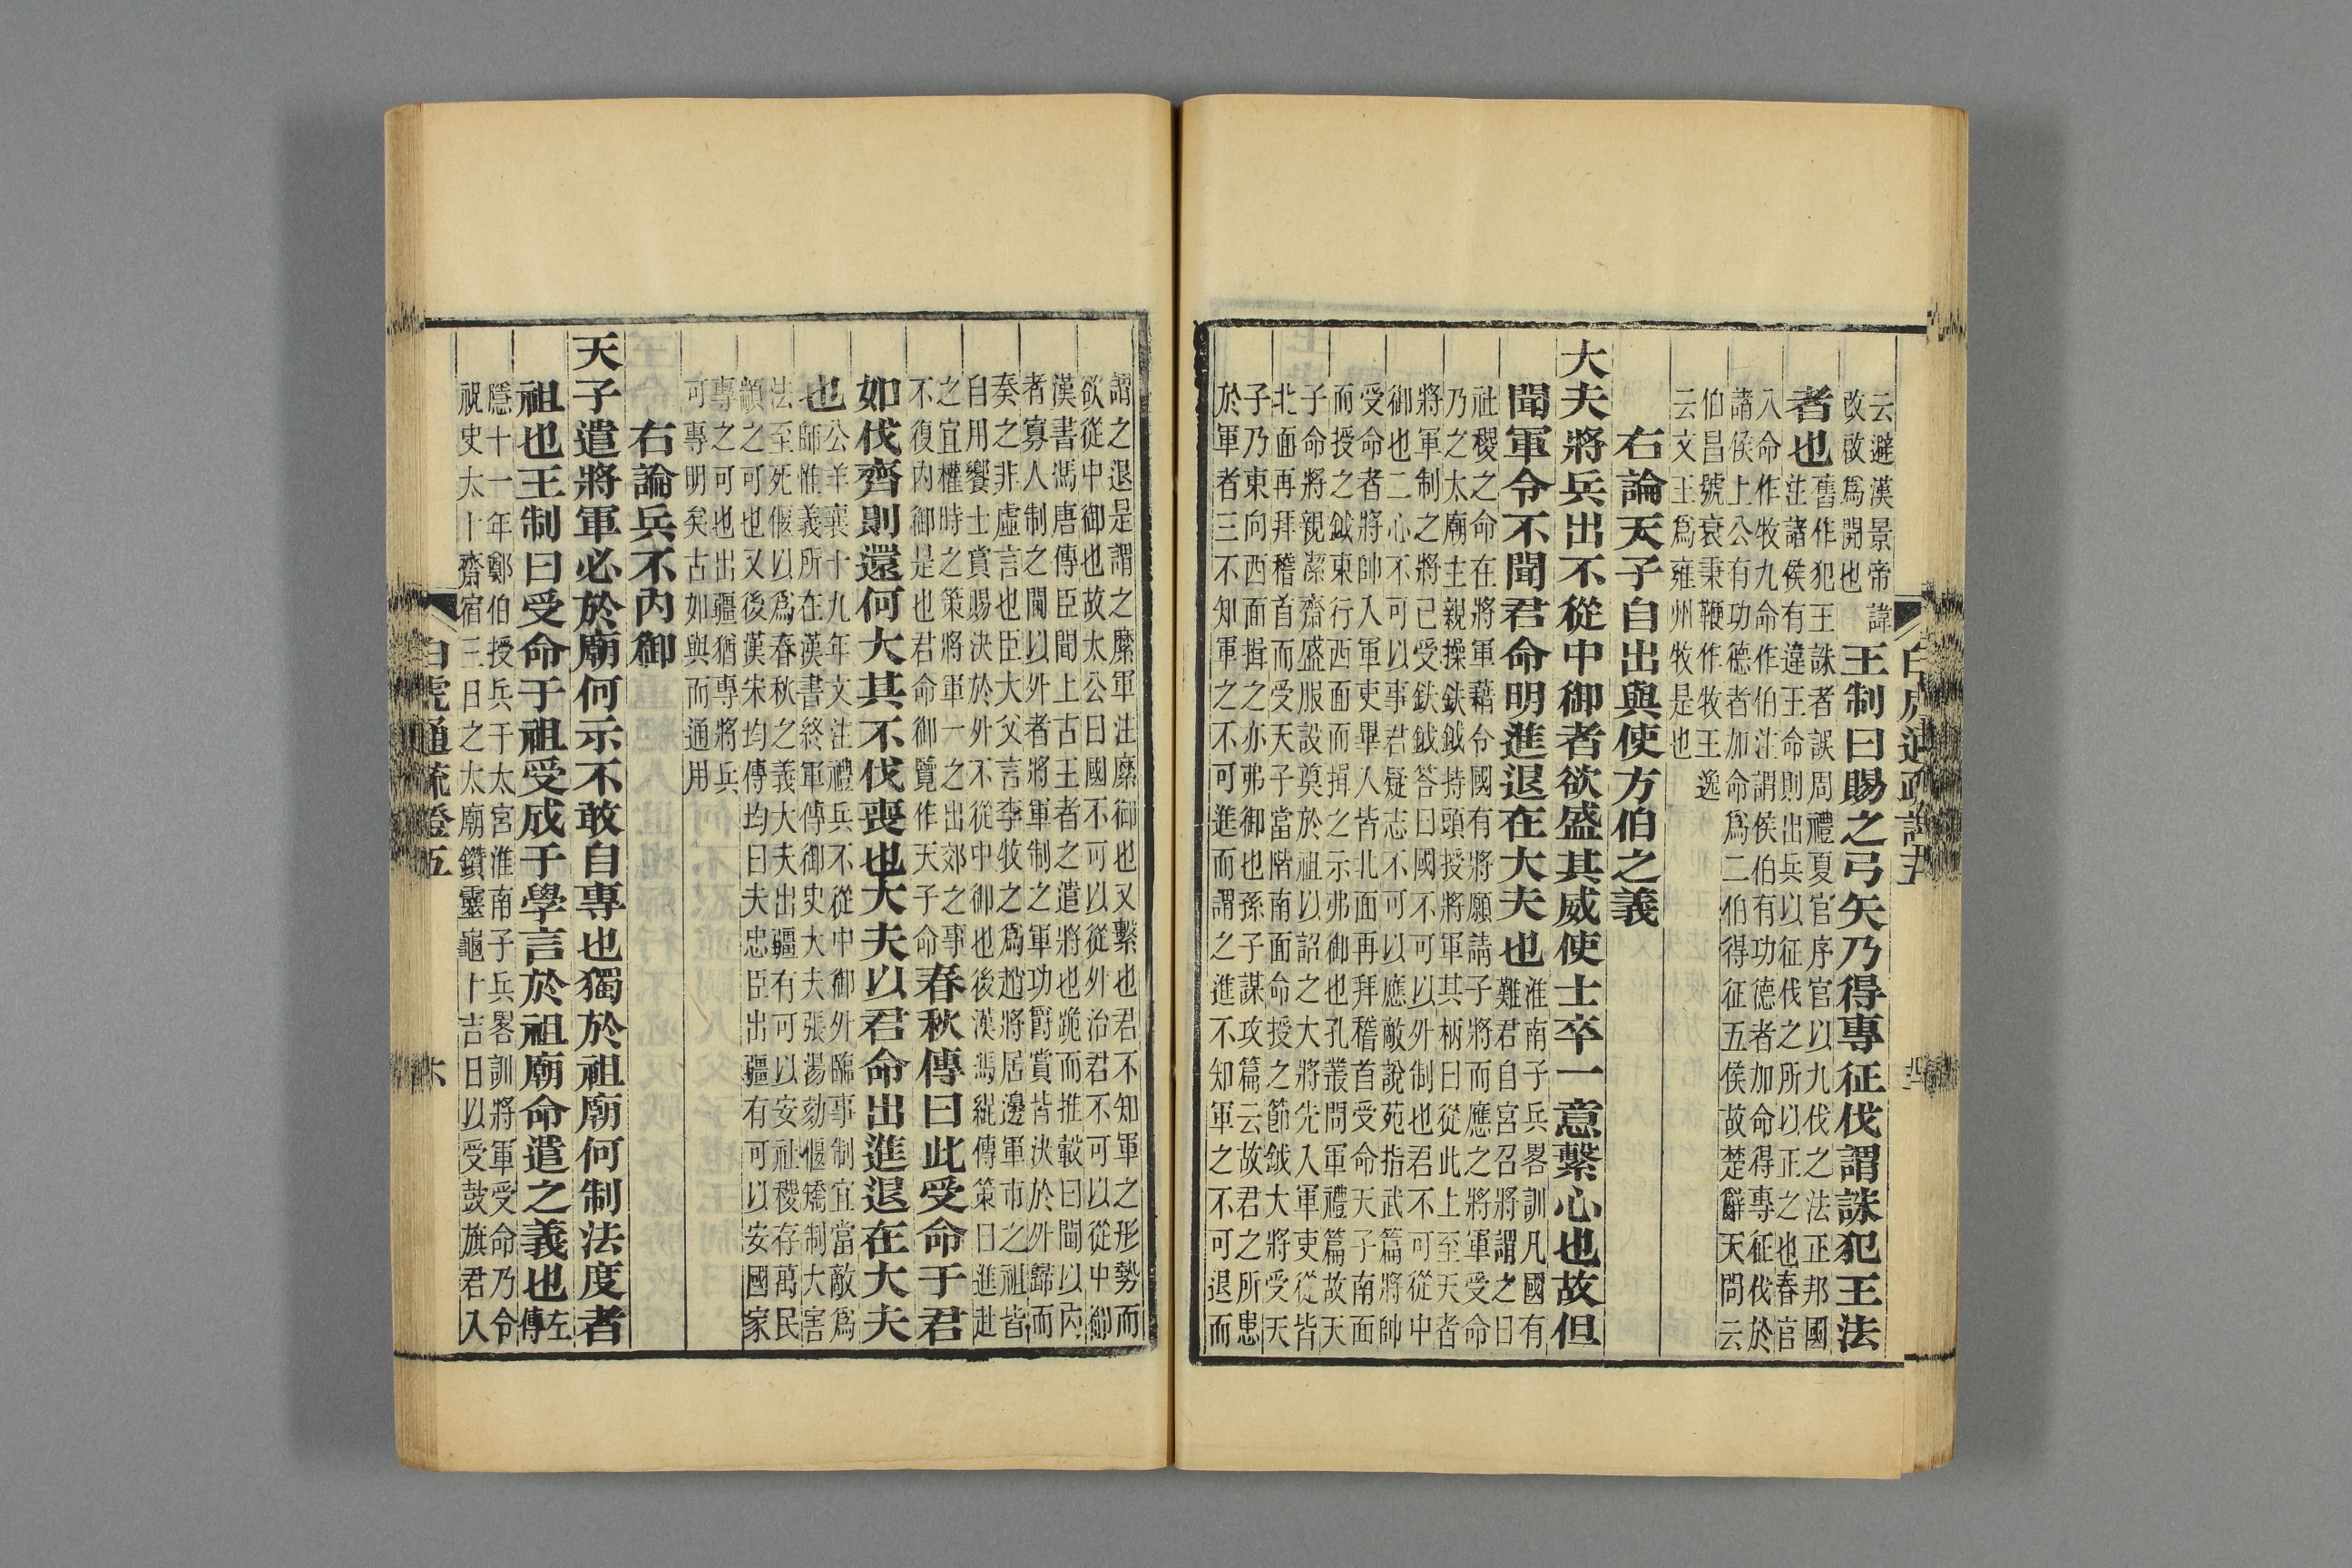 白虎通疏證五
云避漢景帝諱
改啟爲開也
王制曰賜之弓矢乃得專征伐謂誅犯王法
者也
舊作犯王誅者誤周禮夏官序官以九伐之法正邦國
注諸侯有違王命則出兵以征伐之所以正之也春官
八命作牧九命作伯注謂侯伯有功德者加命得專征伐於
諸侯上公有功德者加命爲二伯得征五侯故楚辭天問云
伯昌號衰秉鞭作牧王逸
云文王爲雍州牧是也
右論天子自出與使方伯之義
大夫將兵出不從中御者欲盛其威使士卒一意繫心也故但
聞軍令不聞君命明進退在大夫也
淮南子兵畧訓凡國有
難君自宮召將謂之曰
社稷之命在將軍藉令國有將願請子將而應之將軍受命
乃之太廟主親操鈇鉞持頭授將軍其柄曰從此上至天者
將軍制之將已受鈇鉞答曰國不可以外制也君不可從中
御也二心不可以事君疑志不可以應敵說苑指武篇將帥
受命者將帥入軍吏畢入皆北面再拜稽首受命天子南面
而授之鉞東行西面而揖之示弗御也孔叢問軍禮篇故天
子命將親潔齋盛服設奠於祖以詔之大將先入軍吏從皆
北面再拜稽首而受天子當階南面命授之節鉞大將受天
子乃東向西面揖之亦弗御也孫子謀攻篇云故君之所患
於軍者三不知軍之不可進而謂之進不知軍之不可退而
謂之退是謂之縻軍注縻御也又繫也君不知軍之形勢而
欲從中御也故太公曰國不可以從外治君不可以從中御
漢書馮唐傳臣聞上古王者之遣將也跪而推轂曰閫以內
者寡人制之閫以外者將軍制之軍功爵賞皆決於外歸而
奏之非虛言也臣大父言李牧之爲趙將居邊軍市之租皆
自用饗士賞賜決於外不從中御也後漢馮緄傳策曰進赴
之宜權時之策將軍一之出郊之事
不復內御是也君命御覽作天子命
春秋傳曰此受命于君
如伐齊則還何大其不伐喪也大夫以君命出進退在大夫
也
公羊襄十九年文注禮兵不從中御外臨事制宜當敵爲
師惟義所在漢書終軍傳御史大夫張湯劾偃矯制大害
法至死偃以爲春秋之義大夫出疆有可以安社稷存萬民
顓之可也又後漢宋均傳均曰夫忠臣出疆有可以安國家
專之可也出疆猶專將兵
可專明矣古如與而通用
右論兵不內御
天子遣將軍必於廟何示不敢自專也獨於祖廟何制法度者
祖也王制曰受命于祖受成于學言於祖廟命遣之義也
左
傳
隱十一年鄭伯授兵于太宮淮南子兵畧訓將軍受命乃令
祝史太卜齋宿三日之太廟鑽靈龜卜吉日以受鼓旗君入
白虎通疏證五
六